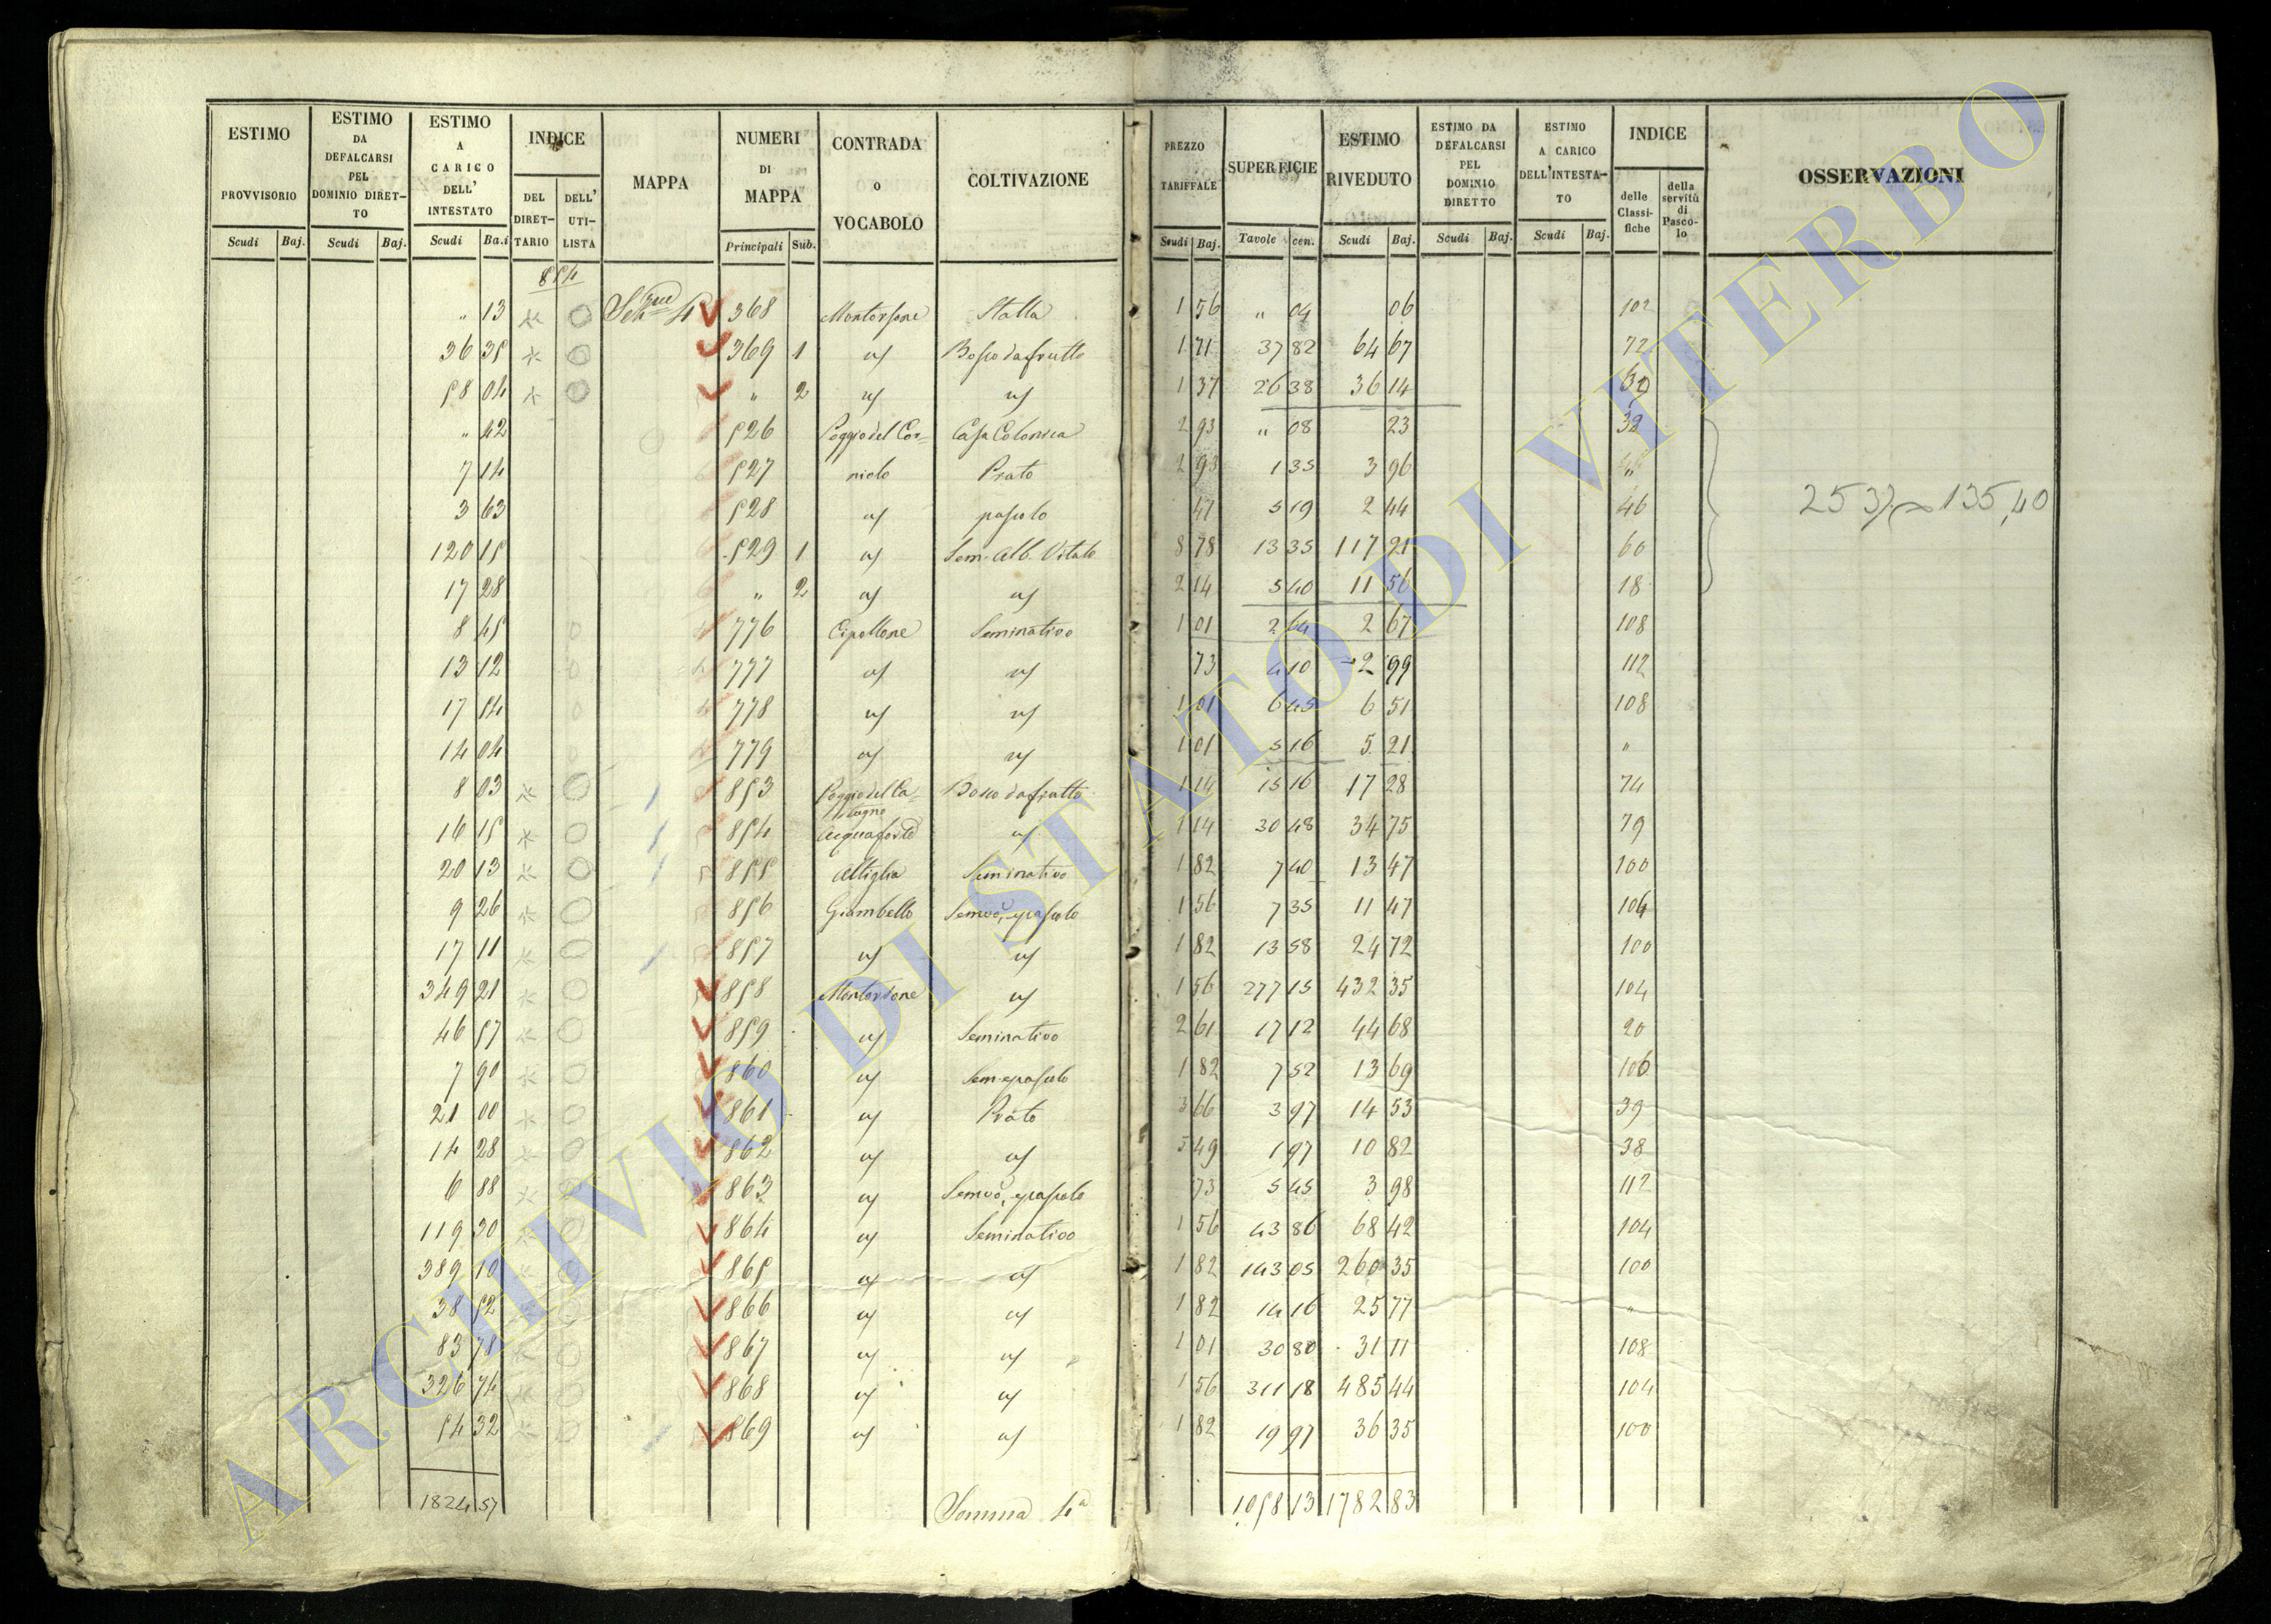 ESTIMO PROVVISORIO Scudi Baj.
ESTIMO DA DEFALCARSI PEL DOMINIO DIRETTO Scudi Baj.
ESTIMO A CARICO DELL' INTESTATO Scudi Ba.i
INDICE DEL DIRETTARIO DELL' UTILISTA
MAPPA
NUMERI DI MAPPA Principali Sub.
CONTRADA O VOCABOLO
COLTIVAZIONE
PREZZO TARIFFALE Scudi Baj.
SUPERFICIE Tavole cen.
ESTIMO RIVEDUTO Scudi Baj.
ESTIMO DA DEFALCARSI PEL DOMINIO DIRETTO Scudi Baj.
ESTIMO A CARICO DELL'INTESTATO Scudi Baj.
INDICE delle Classifiche della servitù di Pascolo
OSSERVAZIONI
854
" 13 Sez.ne 4 368 Montorsone Stalla 1 56 " 04 06 102
36 35 369 1 " Bosco da frutto 1 71 37 82 64 67 72
58 04 " 2 " " 1 37 26 38 36 14
" 42 526 Poggio del Cor- Casa Colonica 2 93 " 08 23 39
7 14 527 niolo Prato 2 93 1 35 3 96 "
3 63 528 " pascolo 47 5 19 2 44 46
120 15 529 1 " Sem. Alb. Vitato 8 78 13 35 117 21 60
17 28 " 2 " " 2 14 5 40 11 56 18
8 45 776 Cipollone Seminativo 1 01 2 64 2 67 108
13 12 777 " " 73 4 10 2 99 112
17 54 778 " " 1 01 6 45 6 51 108
14 04 779 " " 1 01 5 16 5 21 "
8 03 853 Poggio del Ca- Bosco da frutto 1 14 15 16 17 28 74
stagno
16 15 854 Acquaforte " 1 14 30 48 34 75 79
20 13 855 Altiglia Seminativo 1 82 7 40 13 47 100
9 26 856 Giambello Semvo, e pascolo 1 56 7 35 11 47 104
17 11 857 " " 1 82 13 58 24 72 100
349 21 858 Montorsone " 1 56 277 15 432 35 104
46 57 859 " Seminativo 2 61 17 12 44 68 20
7 90 860 " Sem e pascolo 1 82 7 52 13 69 106
21 00 861 " Prato 3 66 3 97 14 53 39
14 28 862 " " 5 49 1 97 10 82 38
6 88 863 " Semvo, e pascolo 73 5 45 3 98 112
119 30 864 " Seminativo 1 56 43 86 68 42 104
389 10 865 " " 1 82 143 05 260 35 100
38 52 866 " " 1 82 14 16 25 77 "
83 78 867 " " 1 01 30 80 31 11 108
326 74 868 " " 1 56 311 18 485 44 104
54 32 869 " " 1 82 19 97 36 35 100
1824 57 Somma 4a 1058 13 1782 83
135,40
ARCHIVIO DI STATO DI VITERBO